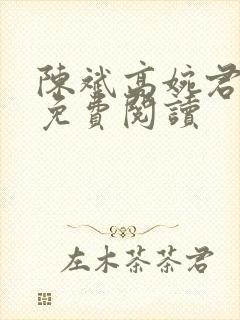 陳斌高婉君
免費閱讀
左木茶茶君